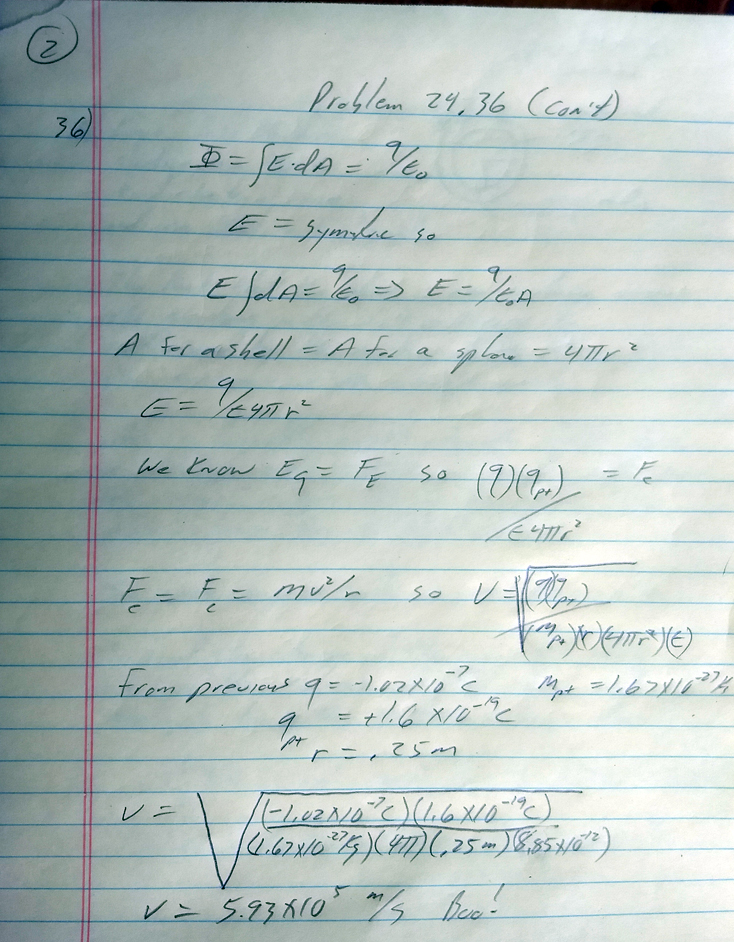 2
Problem 24.36 (con't)
36)
Φ = ∫E·dA = q/ε₀
E = so
E∫dA = q/ε₀ => E = q/ε₀A
A for a shell = A for a sphere = 4πr²
E = q/ε4πr²
We know Eq = F_E so (q)(q_pt)/ε4πr² = F_e
F_e = F_c = mv²/r so V = √(q)(q_pt)/(m_pt)(r)(4πr²)(ε)
From previous q = -1.02×10⁻⁷C m_pt = 1.67×10⁻²⁷K
q_pt = +1.6×10⁻¹⁹C
r = .25m
v = √(-1.02×10⁻⁷C)(1.6×10⁻¹⁹C)/(1.67×10⁻²⁷Kg)(4π)(.25m)(8.85×10⁻¹²)
v = 5.93×10⁵ m/s